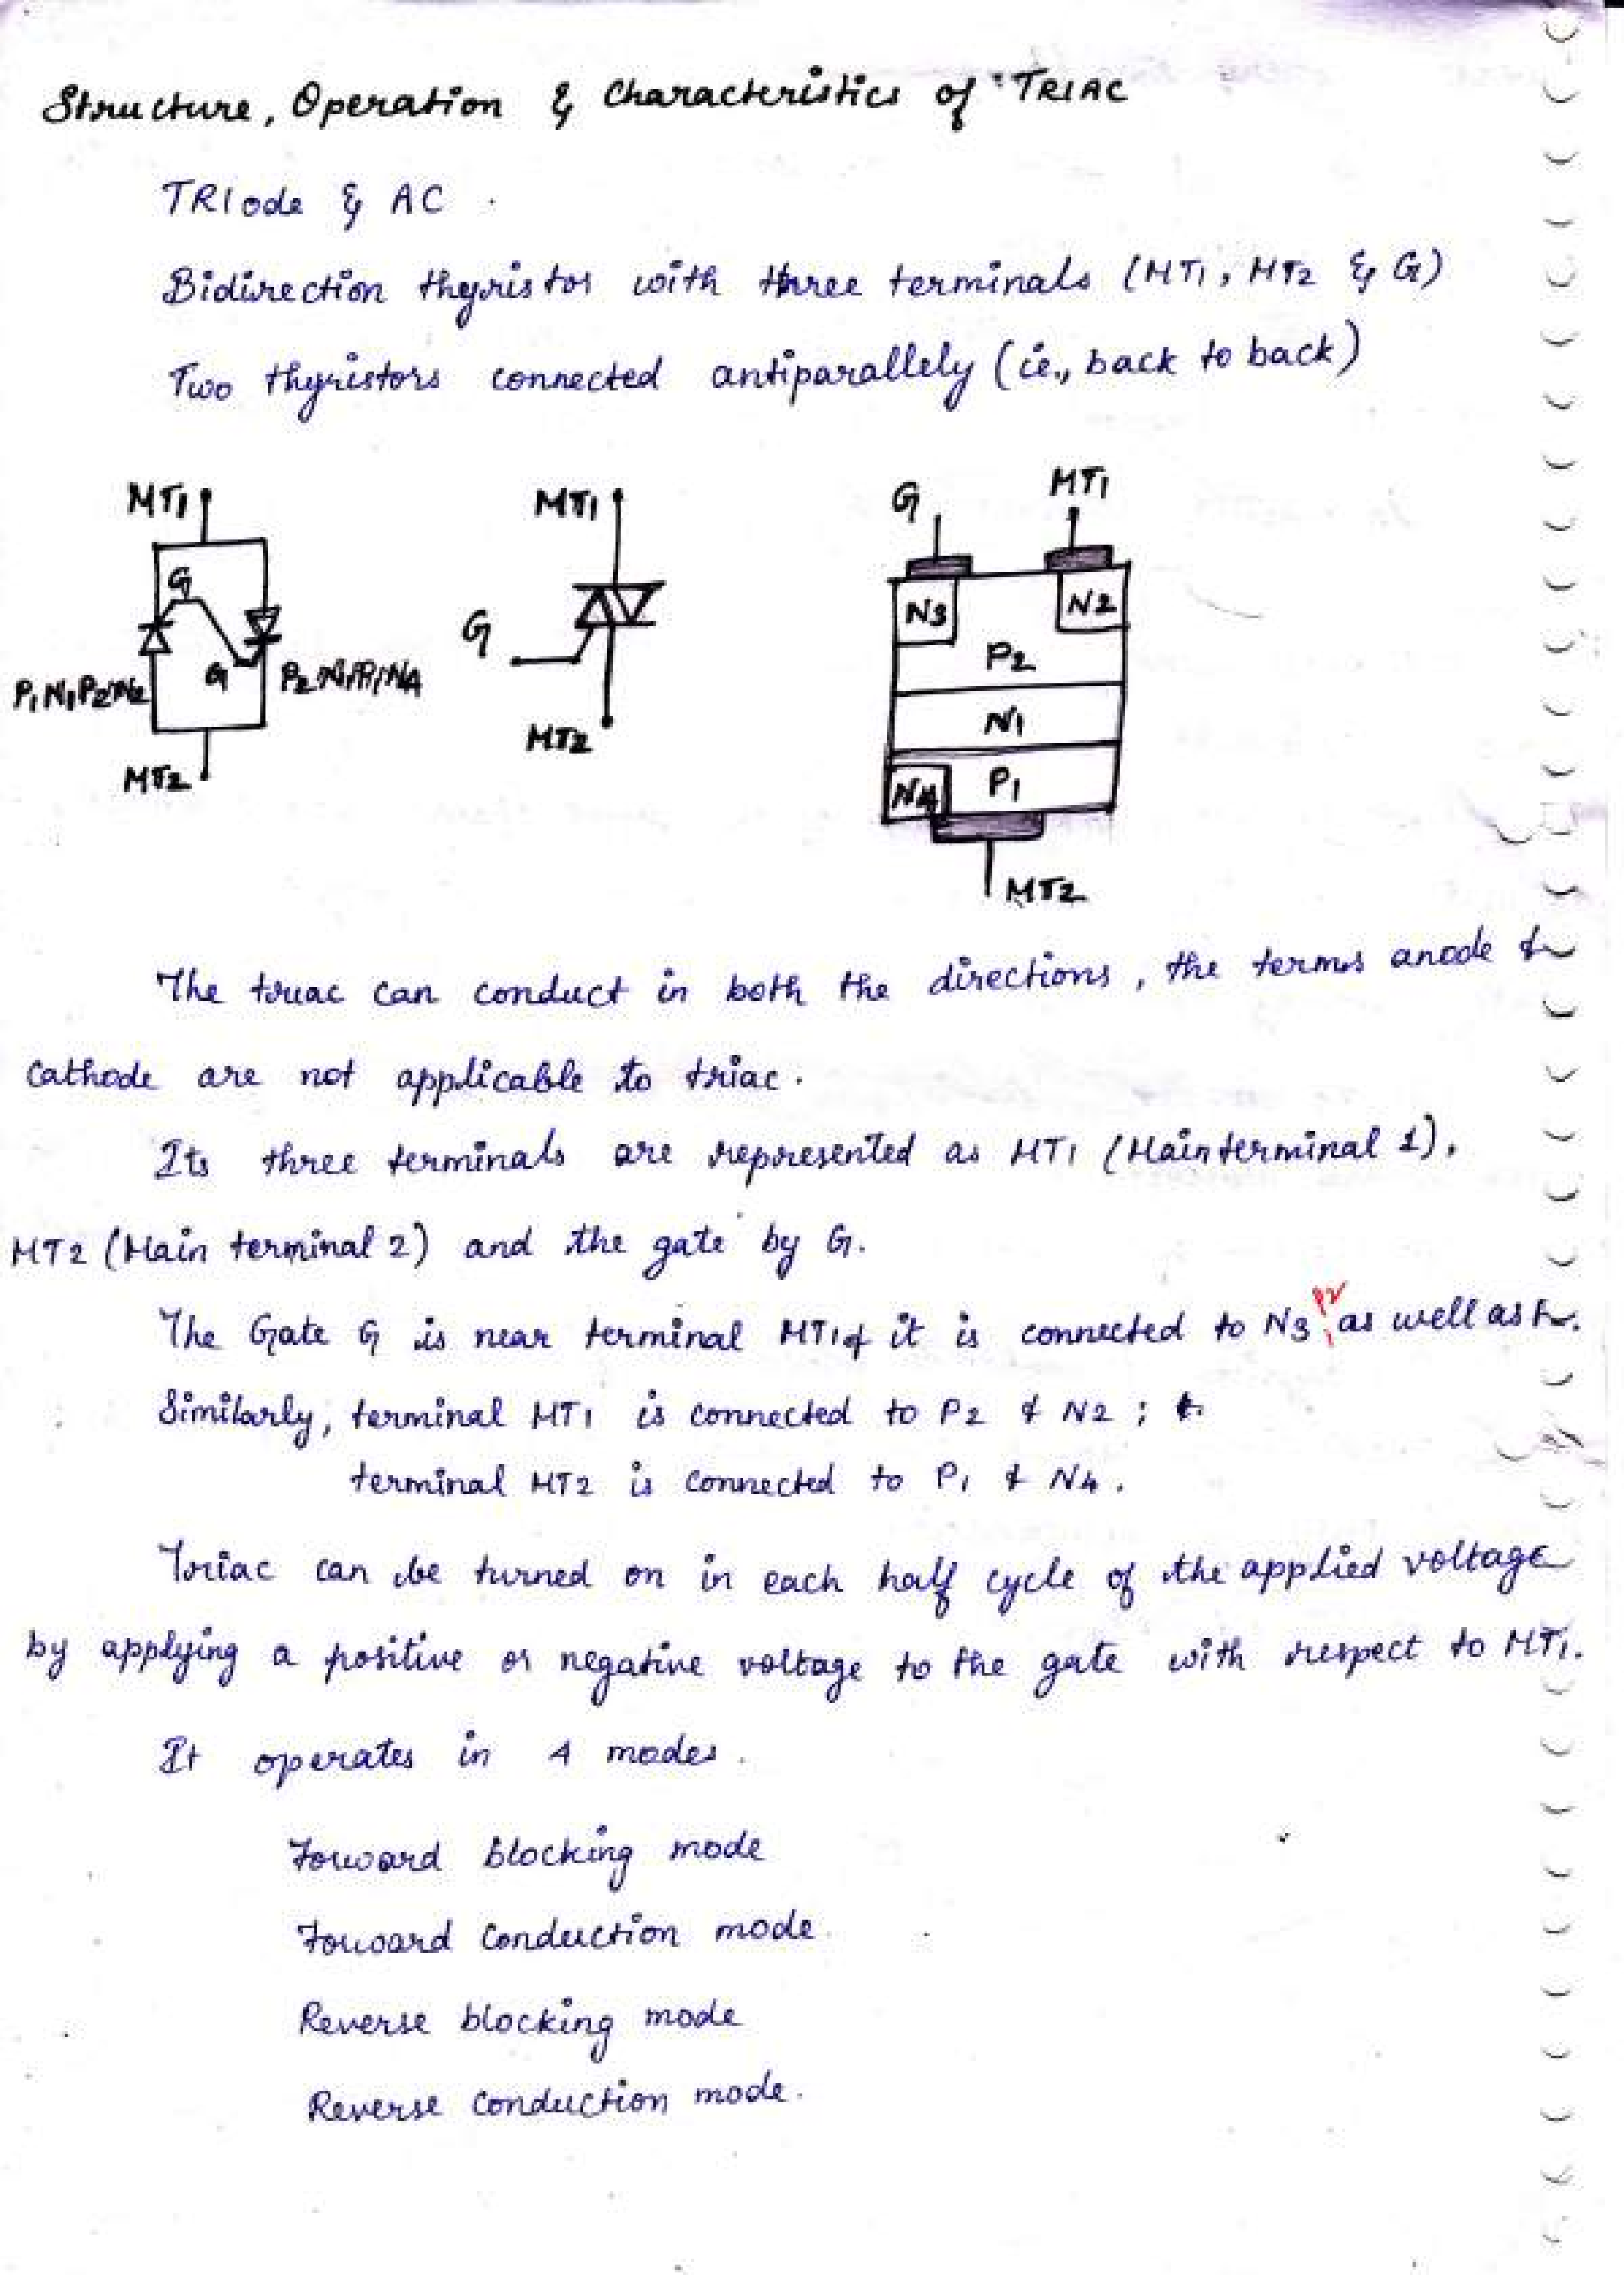 Structure, Operation & Characteristics of TRIAC
TRIode & AC.
Bidirection thyristor with three terminals (MT1, MT2 & G)
Two thyristors connected antiparallely (ie., back to back)
MT1
G
G
P1N1P2N2
P2N1P1N4
MT2
MT1
G
MT2
G
MT1
N3
N2
P2
N1
N4
P1
MT2
The triac can conduct in both the directions, the terms anode &
cathode are not applicable to triac.
Its three terminals are represented as MT1 (Main terminal 1),
MT2 (Main terminal 2) and the gate by G.
The Gate G is near terminal MT1 & it is connected to N3 P2 as well as
Similarly, terminal MT1 is connected to P2 & N2;
terminal MT2 is connected to P1 & N4.
Triac can be turned on in each half cycle of the applied voltage
by applying a positive or negative voltage to the gate with respect to MT1.
It operates in 4 modes.
Forward blocking mode
Forward Conduction mode.
Reverse blocking mode
Reverse Conduction mode.